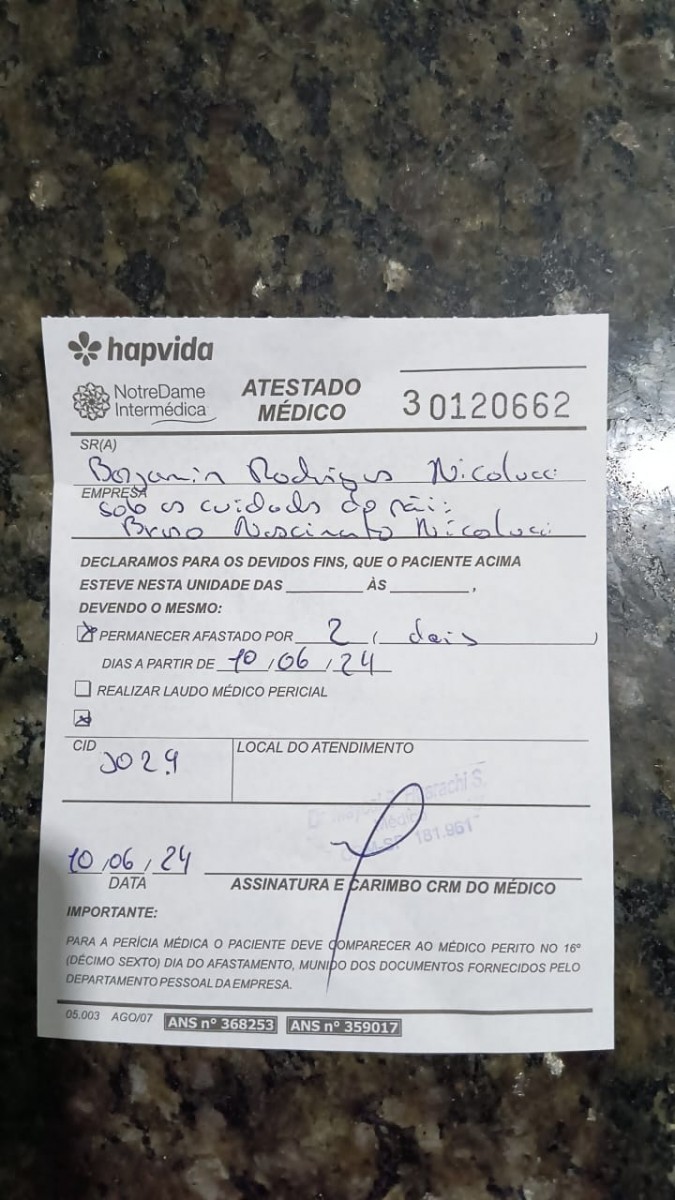 hapvida
NotreDame
Intermédica
ATESTADO
MÉDICO
30120662
SR(A)
Benjamin Rodrigues Nicolucci
EMPRESA
sob os cuidados do pai:
Bruno Nascimento Nicolucci
DECLARAMOS PARA OS DEVIDOS FINS, QUE O PACIENTE ACIMA
ESTEVE NESTA UNIDADE DAS ________ ÀS ________,
DEVENDO O MESMO:
PERMANECER AFASTADO POR 2 ( dois )
DIAS A PARTIR DE 10/06/24
REALIZAR LAUDO MÉDICO PERICIAL
CID
J029
LOCAL DO ATENDIMENTO
Médico
181.961
10/06/24
DATA
ASSINATURA E CARIMBO CRM DO MÉDICO
IMPORTANTE:
PARA A PERÍCIA MÉDICA O PACIENTE DEVE COMPARECER AO MÉDICO PERITO NO 16º
(DÉCIMO SEXTO) DIA DO AFASTAMENTO, MUNIDO DOS DOCUMENTOS FORNECIDOS PELO
DEPARTAMENTO PESSOAL DA EMPRESA.
05.003 AGO/07 ANS nº 368253 ANS nº 359017